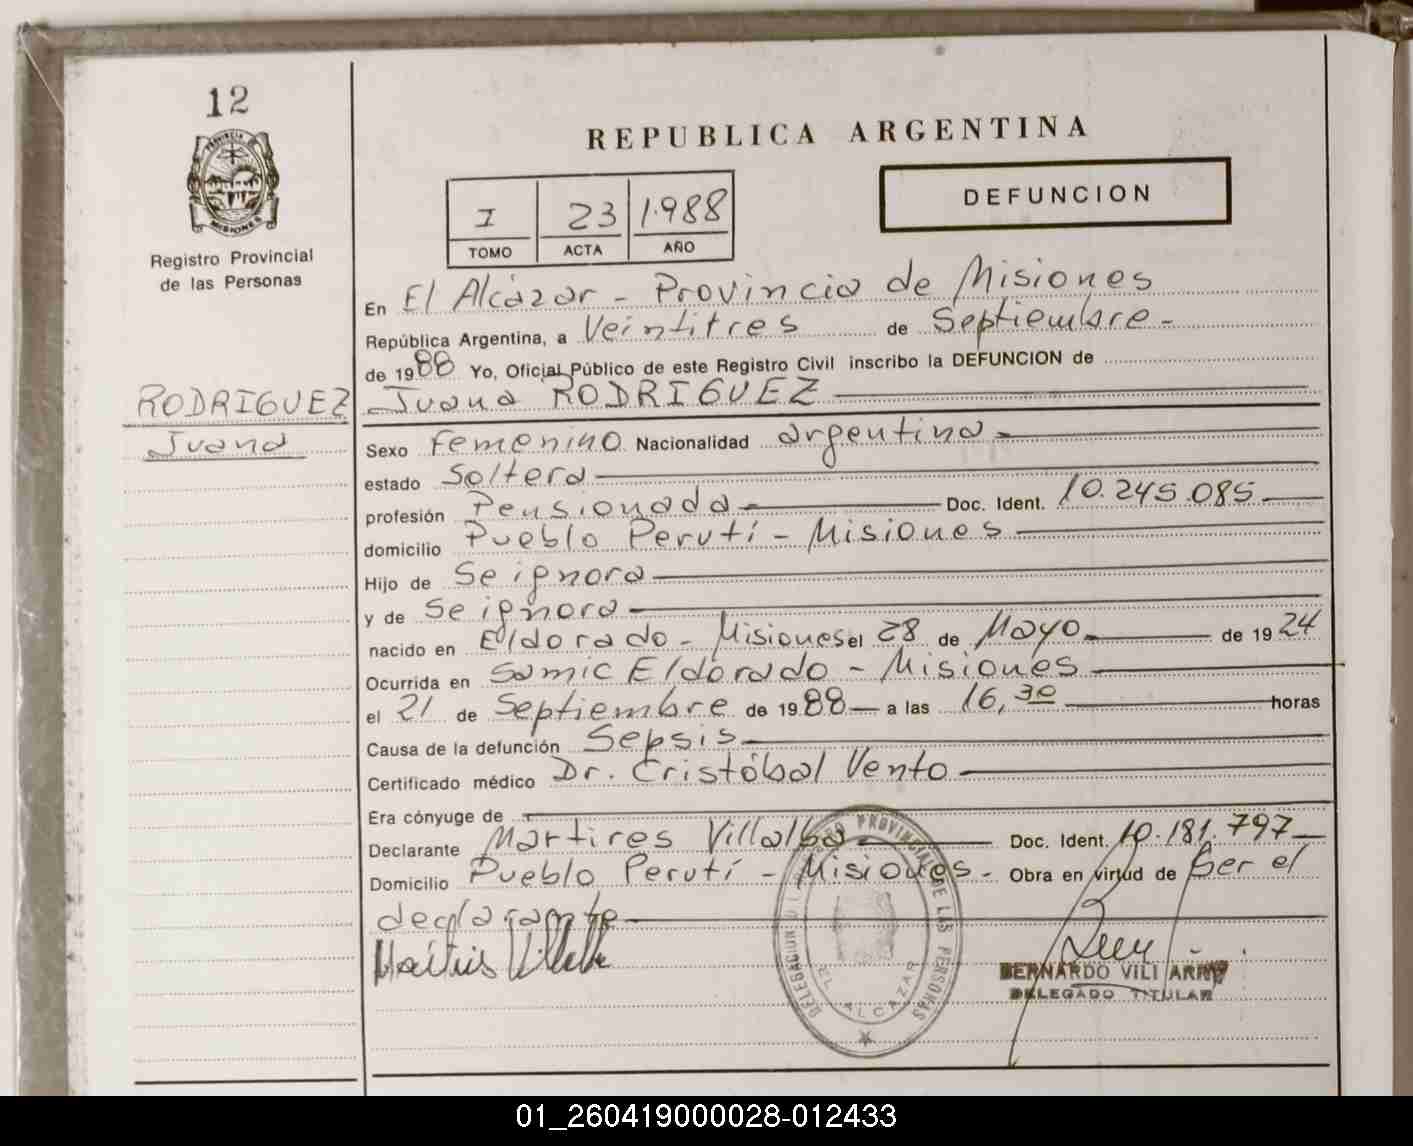 12
PROVINCIA DE
MISIONES
Registro Provincial
de las Personas
REPUBLICA ARGENTINA
DEFUNCION
I 23 1.988
TOMO ACTA AÑO
En El Alcázar - Provincia de Misiones
República Argentina, a Veintitres de Septiembre -
de 1988 Yo, Oficial Público de este Registro Civil inscribo la DEFUNCION de
RODRIGUEZ Juana RODRIGUEZ
Juana
Sexo Femenino Nacionalidad argentina
estado Soltera
profesión Pensionada Doc. Ident. 10.245.085
domicilio Pueblo Perutí - Misiones
Hijo de Se ignora
y de Se ignora
nacido en Eldorado - Misiones el 28 de Mayo de 1924
Ocurrida en Samic Eldorado - Misiones
el 21 de Septiembre de 1988 a las 16,30 horas
Causa de la defunción Sepsis
Certificado médico Dr. Cristóbal Vento
Era cónyuge de
Declarante Martires Villalba Doc. Ident. 10.181.797
Domicilio Pueblo Perutí - Misiones - Obra en virtud de Ser el
declarante
DELEGACION REGISTRO PROVINCIAL DE LAS PERSONAS
EL ALCAZAR
BERNARDO
DELEGADO TITULAR
01_260419000028-012433